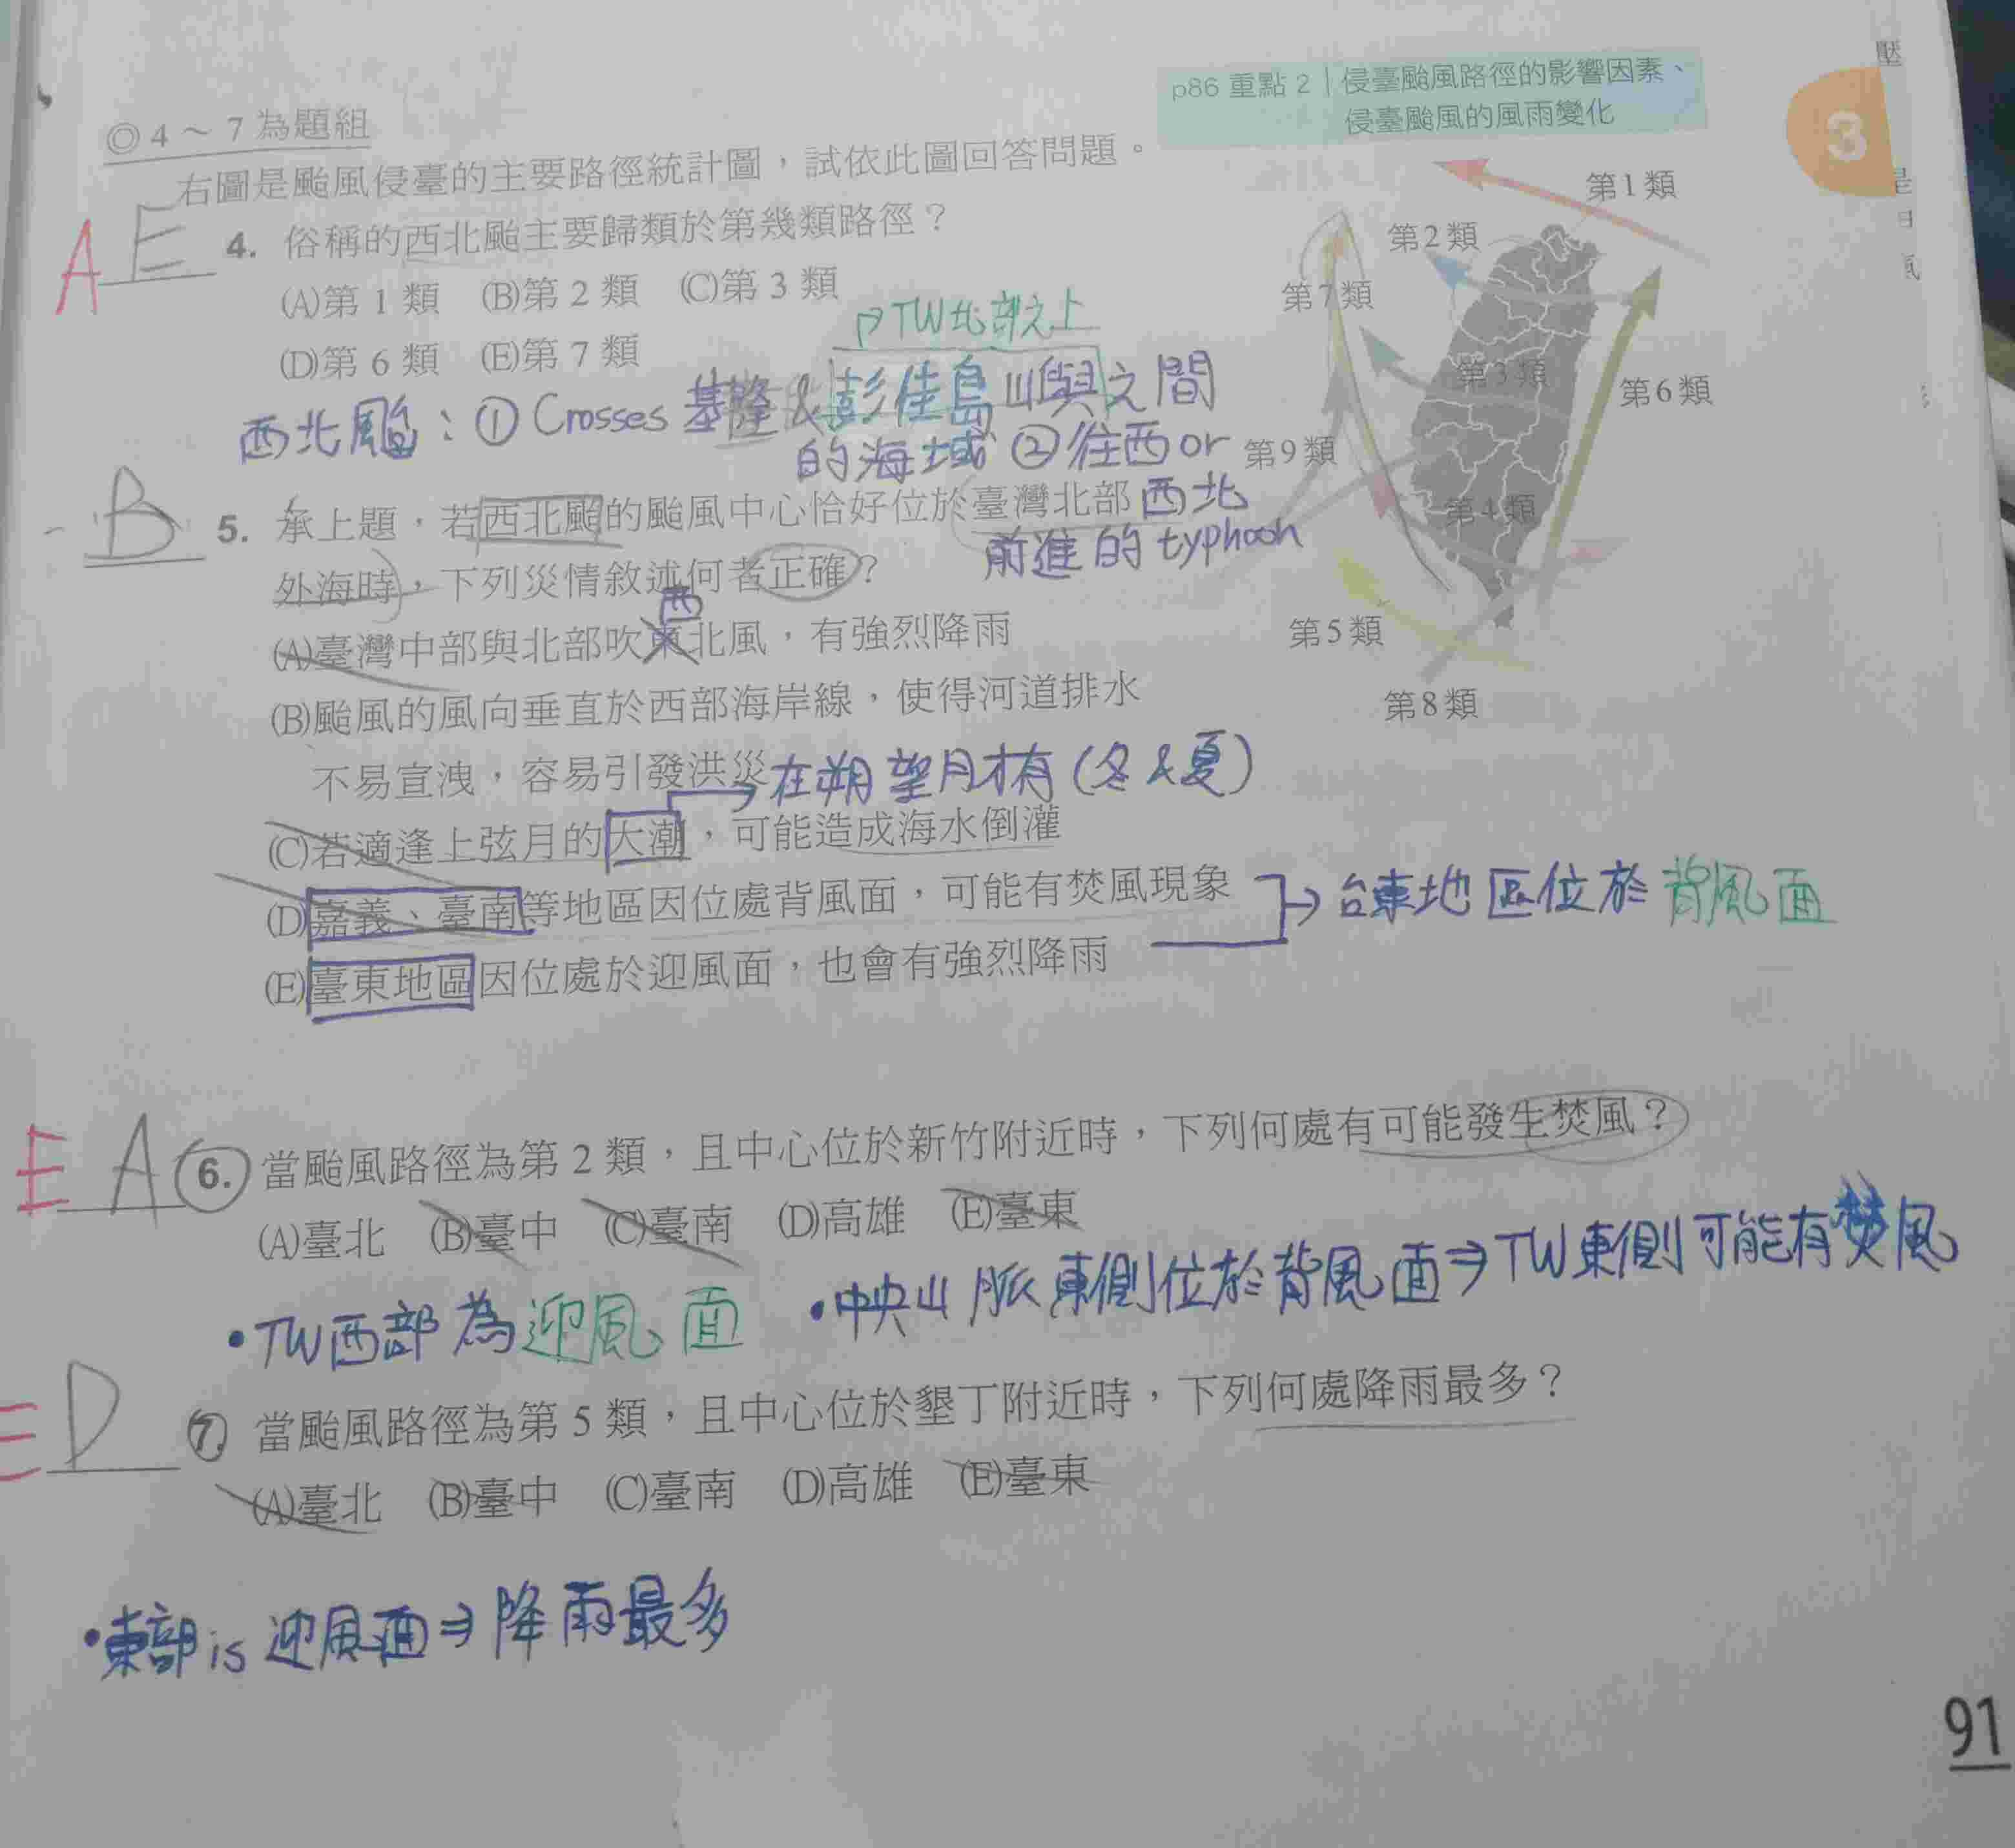 p86 重點 2｜侵臺颱風路徑的影響因素、
侵臺颱風的風雨變化
3
◎4～7為題組
右圖是颱風侵臺的主要路徑統計圖，試依此圖回答問題。
A E 4. 俗稱的西北颱主要歸類於第幾類路徑？
(A)第 1 類 (B)第 2 類 (C)第 3 類
(D)第 6 類 (E)第 7 類
TW北部之上
西北颱：① Crosses 基隆&彭佳島山嶼之間
的海域 ②往西or
西北
前進的typhoon
第1類
第2類
第7類
第3類
第6類
第9類
第4類
第5類
第8類
B 5. 承上題，若西北颱的颱風中心恰好位於臺灣北部
外海時，下列災情敘述何者正確？
西
(A)臺灣中部與北部吹東北風，有強烈降雨
(B)颱風的風向垂直於西部海岸線，使得河道排水
不易宣洩，容易引發洪災
在朔望月才有(冬&夏)
(C)若適逢上弦月的大潮，可能造成海水倒灌
(D)嘉義、臺南等地區因位處背風面，可能有焚風現象
台東地區位於背風面
(E)臺東地區因位處於迎風面，也會有強烈降雨
E A 6. 當颱風路徑為第 2 類，且中心位於新竹附近時，下列何處有可能發生焚風？
(A)臺北 (B)臺中 (C)臺南 (D)高雄 (E)臺東
•TW西部為迎風面 •中央山脈東側位於背風面⇒TW東側可能有焚風
E D 7. 當颱風路徑為第 5 類，且中心位於墾丁附近時，下列何處降雨最多？
(A)臺北 (B)臺中 (C)臺南 (D)高雄 (E)臺東
•東部is 迎風面⇒降雨最多
91